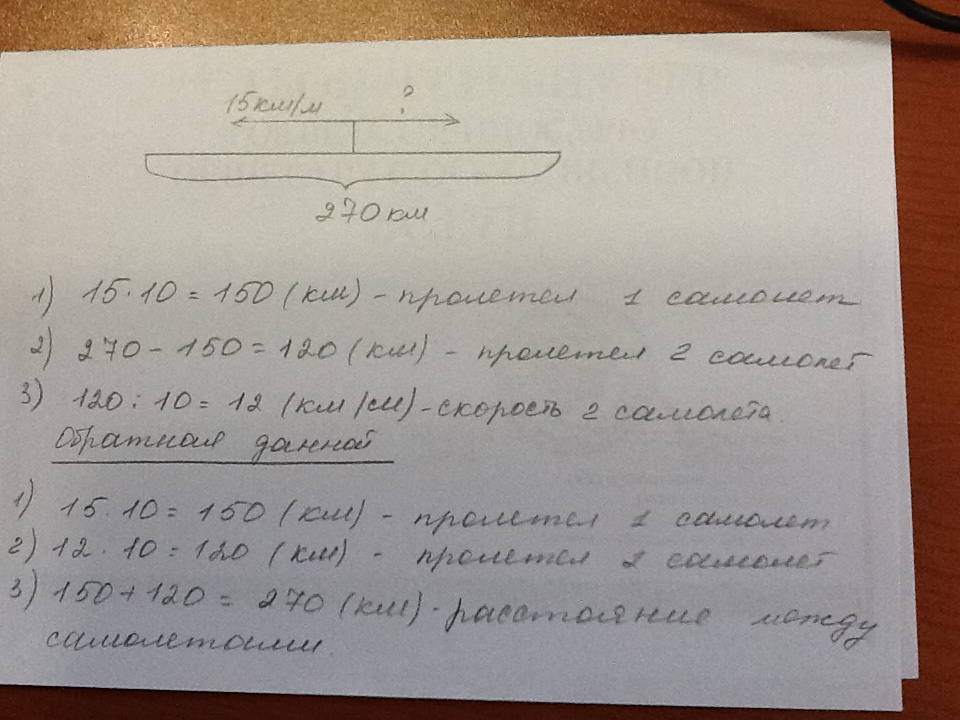 15км/м ?
270 км
1) 15·10 = 150 (км) - пролетел 1 самолет
2) 270 - 150 = 120 (км) - пролетел 2 самолет
3) 120 : 10 = 12 (км/м) - скорость 2 самолета
Обратная данной
1) 15·10 = 150 (км) - пролетел 1 самолет
2) 12·10 = 120 (км) - пролетел 2 самолет
3) 150 + 120 = 270 (км) - расстояние между
самолетами.